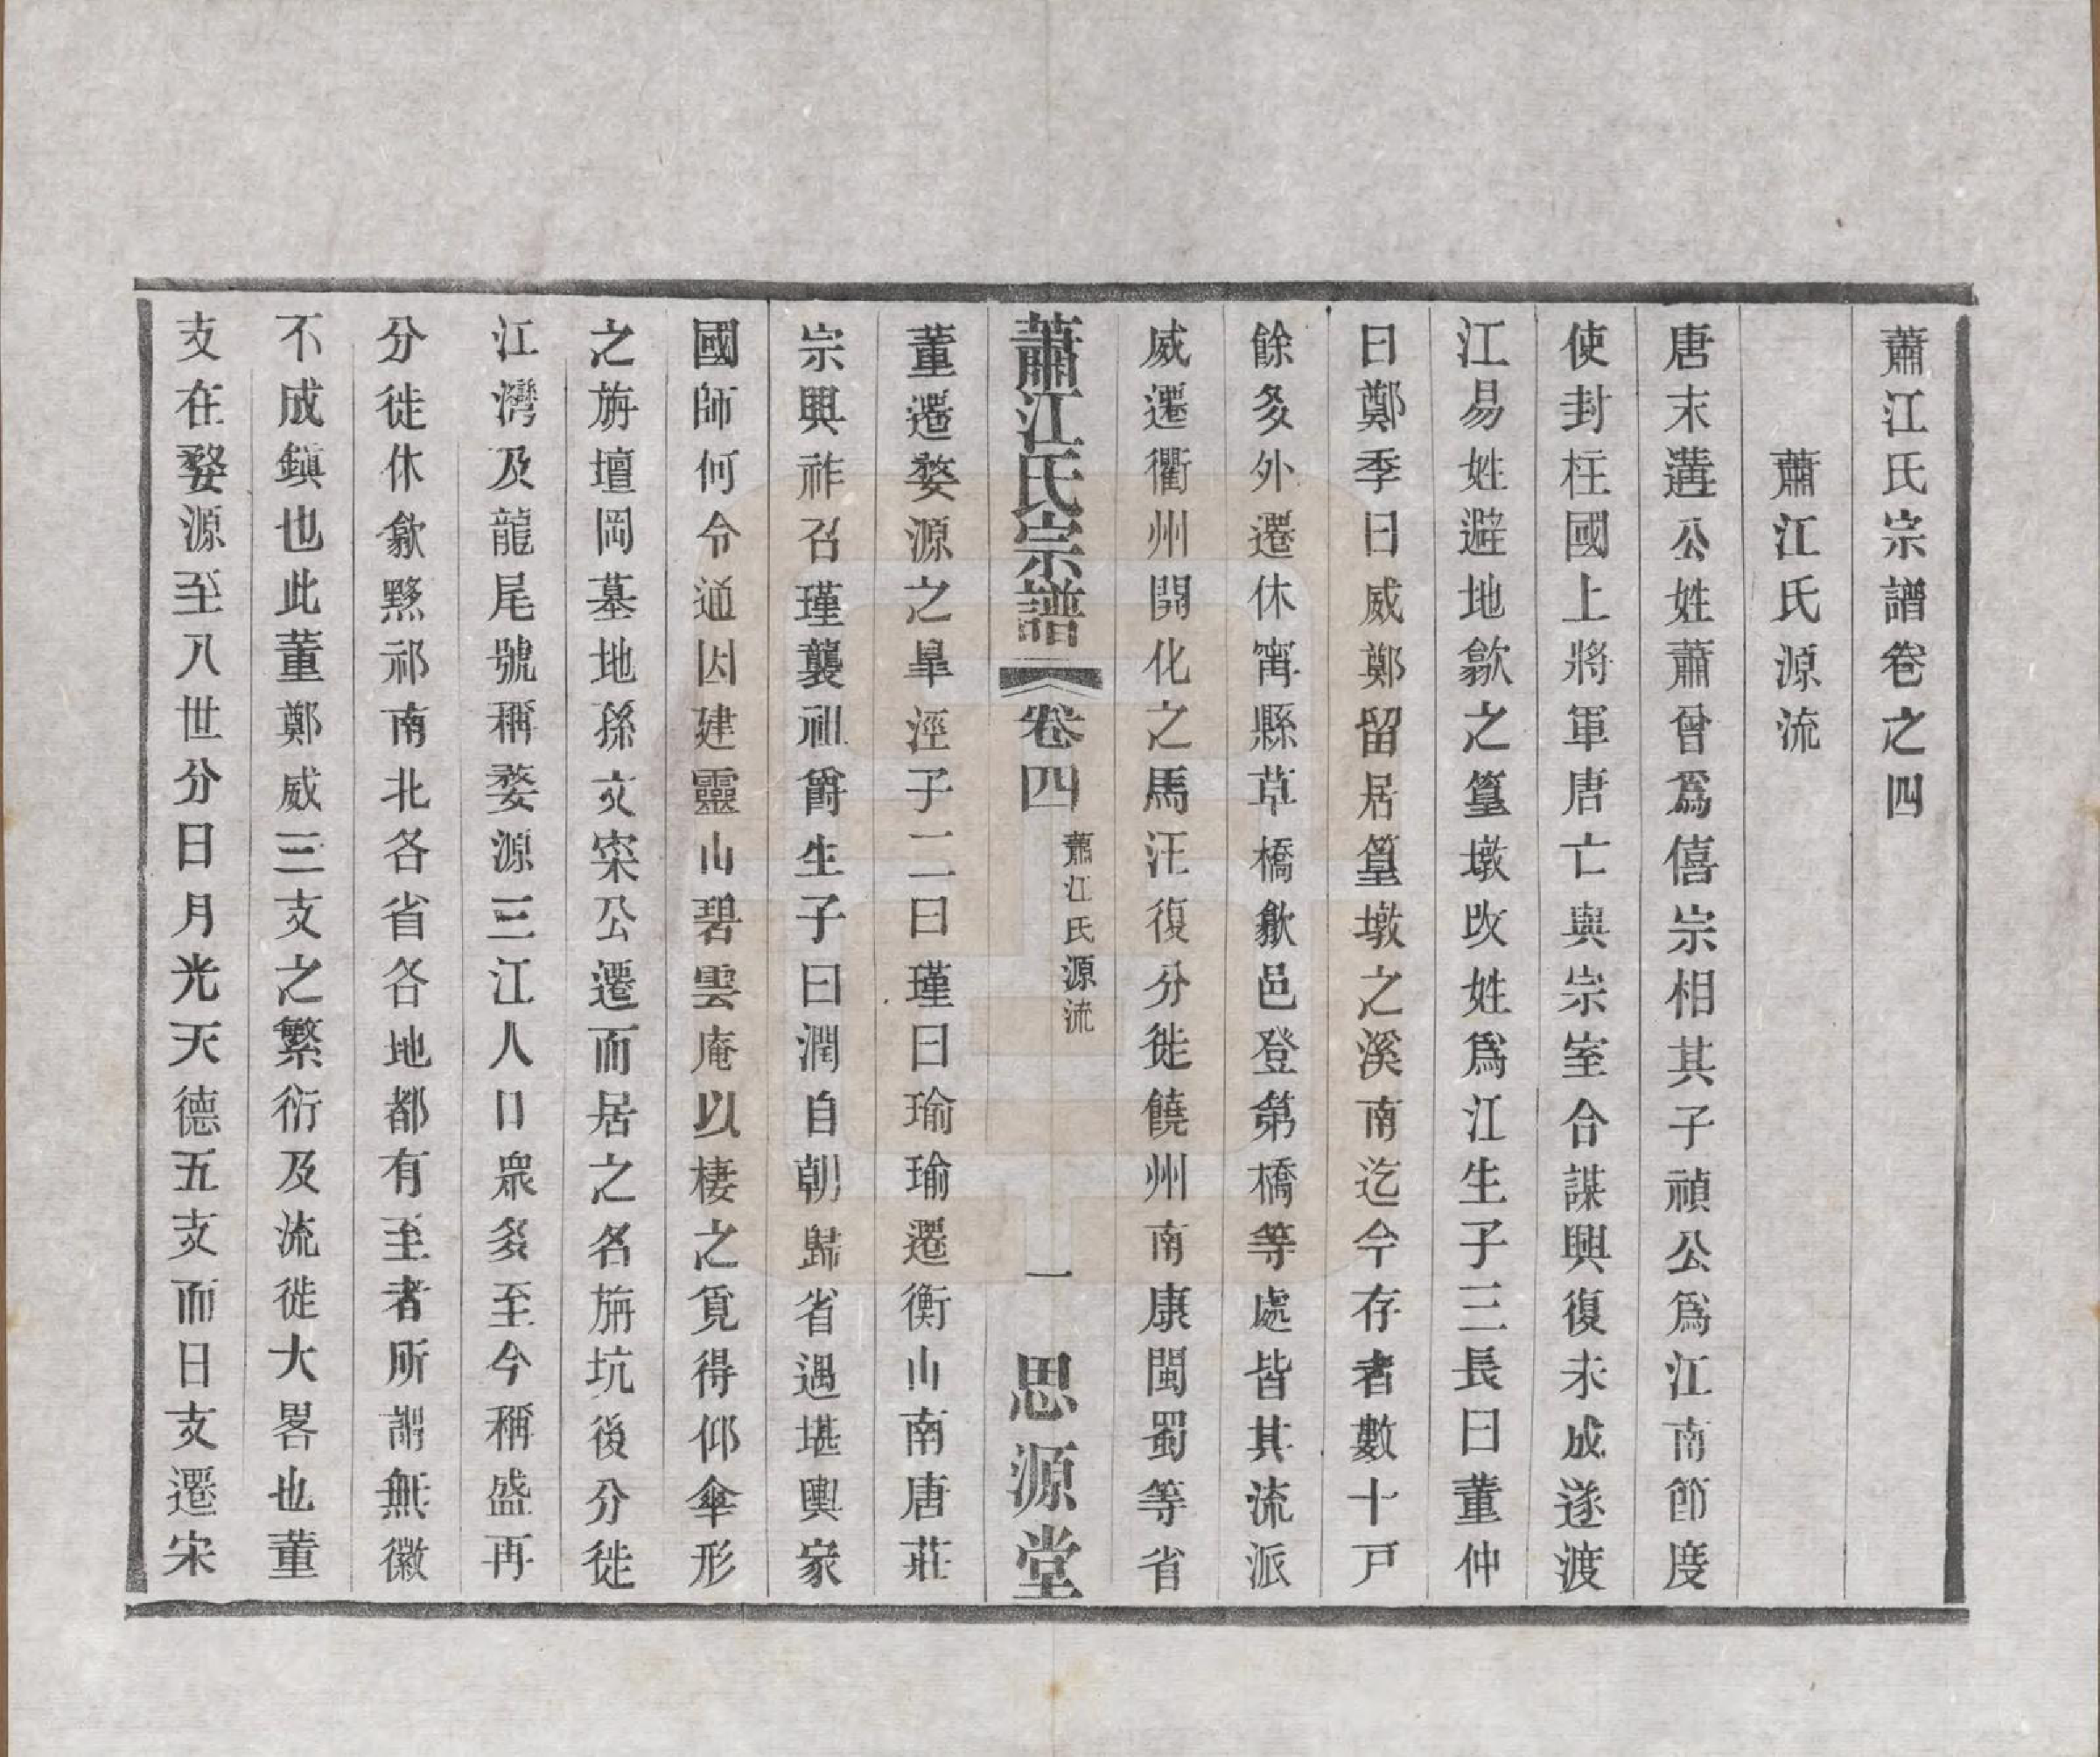 蕭江氏宗譜卷之四
蕭江氏源流
唐末遘公姓蕭曾爲僖宗相其子禎公爲江南節度
使封柱國上將軍唐亡與宗室合謀興復未成遂渡
江易姓避地歙之篁墩改姓爲江生子三長曰董仲
曰鄭季曰威鄭留居篁墩之溪南迄今存者數十戸
餘多外遷休甯縣草橋歙邑登第橋等處皆其流派
威遷衢州開化之馬汪復分徙饒州南康閩蜀等省
蕭江氏宗譜 卷四 蕭江氏源流 一 思源堂
董遷婺源之臯涇子二曰瑾曰瑜瑜遷衡山南唐莊
宗興祚召瑾襲祖爵生子曰潤自朝歸省遇堪輿家
國師何令通因建靈山碧雲庵以棲之覓得仰傘形
之旃壇岡墓地孫文寀公遷而居之名旃坑後分徙
江灣及龍尾號稱婺源三江人口衆多至今稱盛再
分徙休歙黟祁南北各省各地都有至者所謂無徽
不成鎮也此董鄭威三支之繁衍及流徙大畧也董
支在婺源至八世分日月光天德五支而日支遷宋